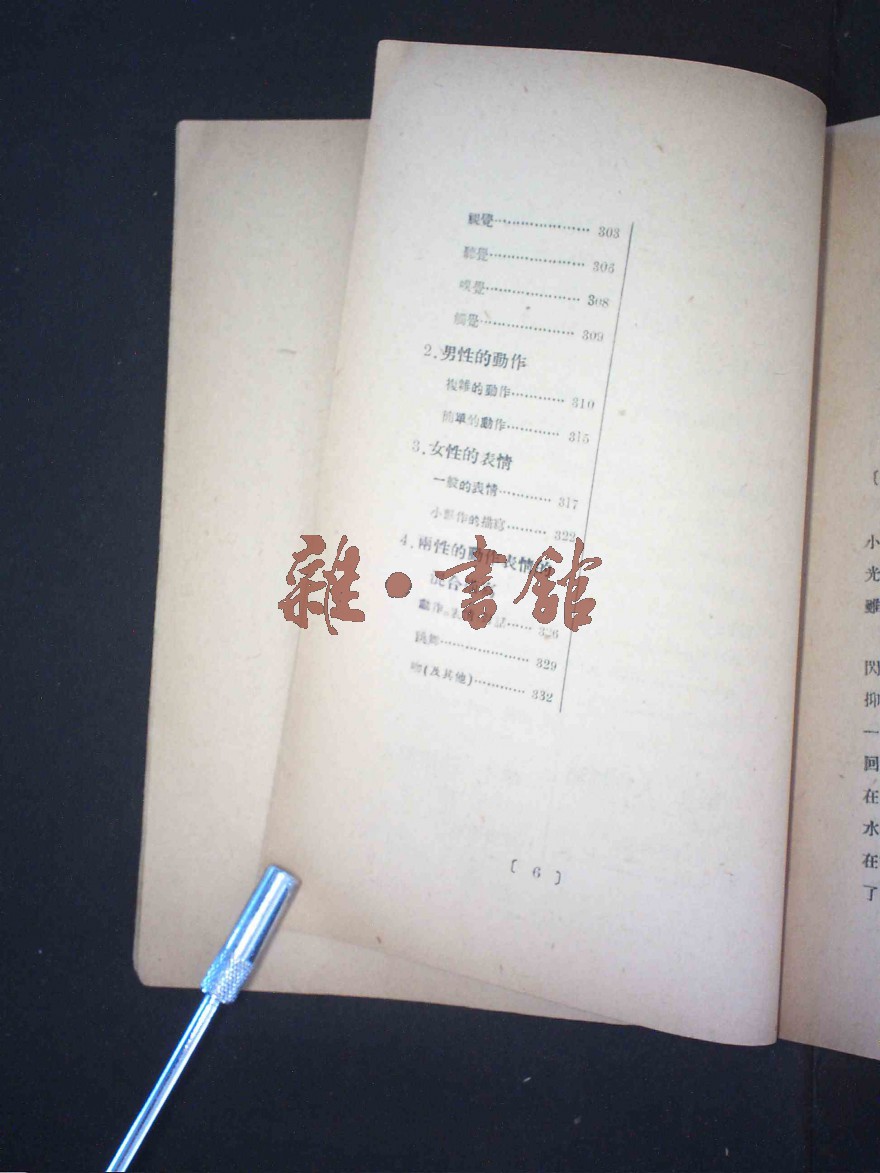 視覺………………… 303
聽覺………………… 306
嗅覺………………… 308
觸覺………………… 309
2.男性的動作
複雜的動作………… 310
簡單的動作………… 315
3.女性的表情
一般的表情………… 317
小動作的描寫……… 322
4.兩性的動作表情的
混合
動作 …… 326
跳舞……………… 329
吻(及其他)………… 332
〔 6 〕
雜·書館
〔
小
光
雖
閃
抑
一
回
在
水
在
了